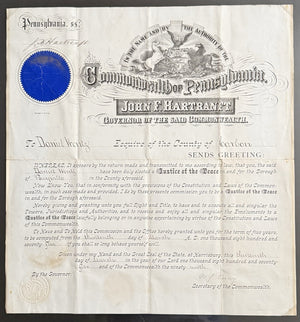 Pennsylvania, ss:
J. F. Hartranft
IN THE NAME AND BY THE AUTHORITY OF THE
Commonwealth of Pennsylvania,
JOHN F. HARTRANFT
GOVERNOR OF THE SAID COMMONWEALTH.
To Daniel Esquire of the County of
SENDS GREETING:
WHEREAS, It appears by the return made and transmitted to me according to law, that you, the said
Daniel have been duly elected a Justice of the Peace in and for the Borough
of in the County aforesaid.
Now Know Ye, That in conformity with the provisions of the Constitution and Laws of the Common-
wealth, in such case made and provided, I do by these presents commission you to be a Justice of
the Peace in the County aforesaid.
Hereby giving and granting unto you full Right and Title, to have and to execute all and singular the
Powers, Jurisdictions and Authorities, and to receive and enjoy all and singular the Emoluments to a
Justice of the Peace lawfully belonging or in anywise appertaining by virtue of the Constitution and Laws
of this Commonwealth.
To Have and To Hold this Commission and the Office hereby granted unto you for the term of five years,
to be computed from the day of A. D. one thousand eight hundred and seventy-
if you shall so long behave yourself well.
Given under my Hand and the Great Seal of the State, at Harrisburg, this
day of in the year of our Lord one thousand eight hundred and seventy-
and of the Commonwealth the ninety
By the Governor
Secretary of the Commonwealth.